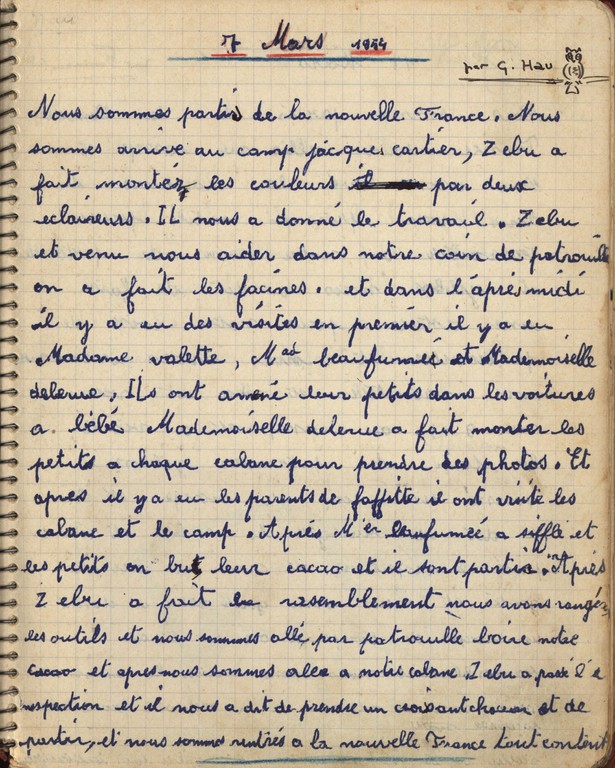 7 Mars 1944
par G. Hau
Nous sommes partis de la nouvelle France. Nous
sommes arrivé au camp jacques cartier, Zebu a
fait montéz les couleurs par deux
eclaireurs. IL nous a donné le travail. Zebu
et venu nous aider dans notre coin de patrouille
on a fait les facines. et dans l'après midi
il y a eu des visites en premier il y a eu
Madame valette, Mad beaufumée et Mademoiselle
delerue, ILs ont amené leur petits dans les voitures
a bébé Mademoiselle delerue a fait monter les
petits a chaque cabane pour prendre des photos. Et
apres il y a eu les parents de faffitte il ont visité les
cabane et le camp. Aprés M'er beaufumeé a sifflé et
les petits on but leur cacao et il sont partie. Aprés
Zebu a fait le rasemblement nous avons rangéz
les outils et nous sommes allé par patrouille boire notre
cacao et apres nous sommes allee a notre cabane Zebu a passé l'i
nspection et il nous a dit de prendre un croissant chacun et de
partir, et nous sommes rentrés a la nouvelle France tout content